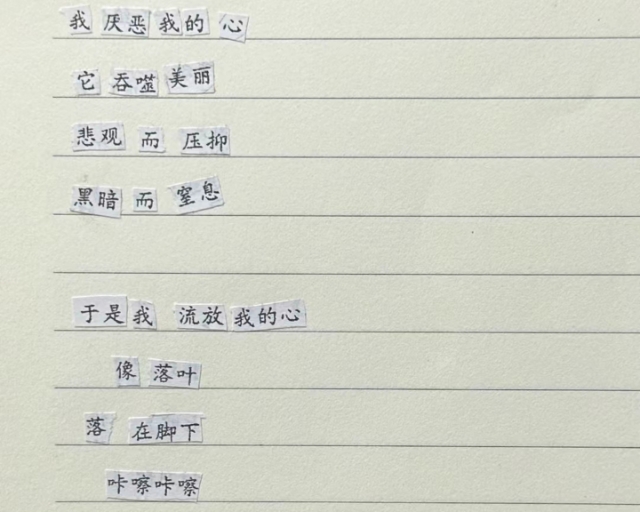 我厌恶我的心
它吞噬美丽
悲观而压抑
黑暗而窒息
于是我流放我的心
像落叶
落在脚下
咔嚓咔嚓